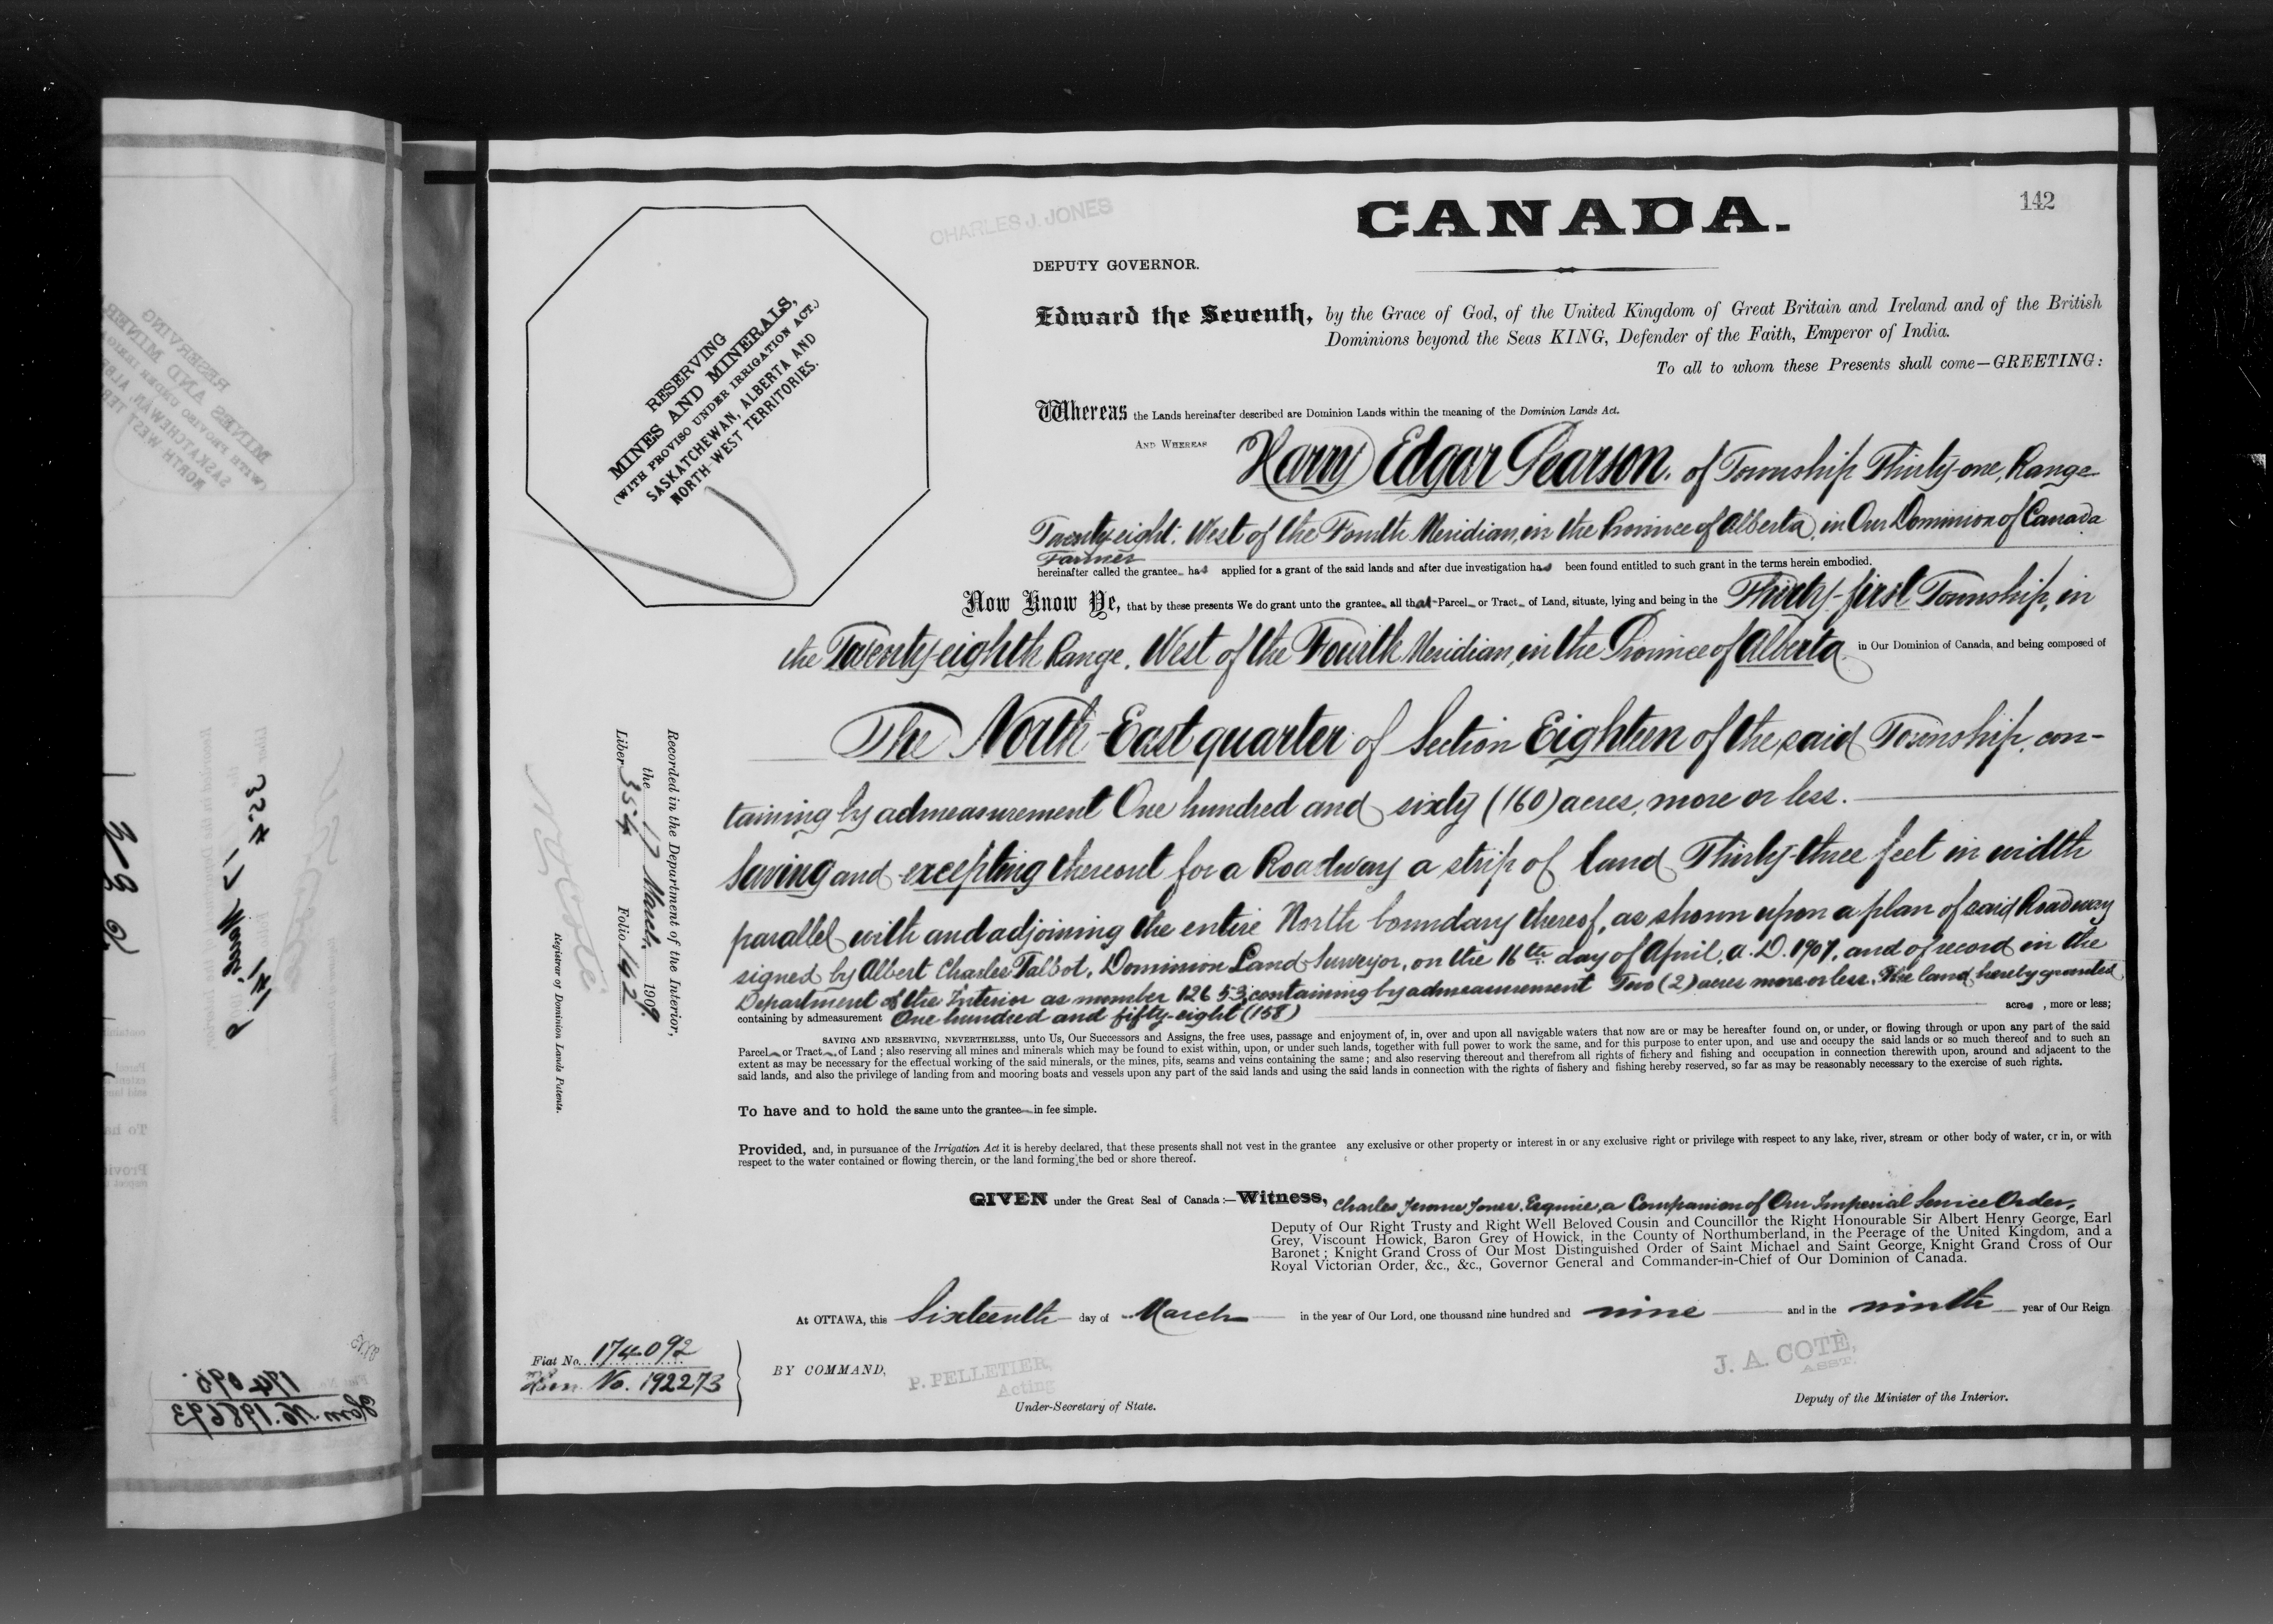 142
CHARLES J. JONES
CANADA.
DEPUTY GOVERNOR.
Edward the Seventh, by the Grace of God, of the United Kingdom of Great Britain and Ireland and of the British
Dominions beyond the Seas KING, Defender of the Faith, Emperor of India.
To all to whom these Presents shall come—GREETING:
RESERVING
MINES AND MINERALS,
(WITH PROVISO UNDER IRRIGATION ACT.)
SASKATCHEWAN, ALBERTA AND
NORTH-WEST TERRITORIES.
Whereas the Lands hereinafter described are Dominion Lands within the meaning of the Dominion Lands Act.
AND WHEREAS Harry Edgar Pearson. of Township Thirty-one, Range
Twenty-eight, West of the Fourth Meridian, in the Province of Alberta, in Our Dominion of Canada
Farmer
hereinafter called the grantee has applied for a grant of the said lands and after due investigation has been found entitled to such grant in the terms herein embodied.
Now Know Ye, that by these presents We do grant unto the grantee, all that Parcel or Tract of Land, situate, lying and being in the Thirty-first Township, in
the Twenty-eighth Range, West of the Fourth Meridian, in the Province of Alberta in Our Dominion of Canada, and being composed of
The North-East quarter of Section Eighteen of the said Township, con-
taining by admeasurement One hundred and sixty (160) acres, more or less.
Saving and excepting thereout for a Roadway a strip of land Thirty-three feet in width
parallel with and adjoining the entire North boundary thereof, as shown upon a plan of said Roadway
signed by Albert Charles Talbot, Dominion Land Surveyor, on the 16th day of April, A.D. 1907, and of record in the
Department of the Interior as number 12653, containing by admeasurement Two (2) acres more or less. The land hereby granted
containing by admeasurement One hundred and fifty-eight (158) acres, more or less;
SAVING AND RESERVING, NEVERTHELESS, unto Us, Our Successors and Assigns, the free uses, passage and enjoyment of, in, over and upon all navigable waters that now are or may be hereafter found on, or under, or flowing through or upon any part of the said
Parcel or Tract of Land; also reserving all mines and minerals which may be found to exist within, upon, or under such lands, together with full power to work the same, and for this purpose to enter upon, and use and occupy the said lands or so much thereof and to such an
extent as may be necessary for the effectual working of the said minerals, or the mines, pits, seams and veins containing the same; and also reserving thereout and therefrom all rights of fishery and fishing and occupation in connection therewith upon, around and adjacent to the
said lands, and also the privilege of landing from and mooring boats and vessels upon any part of the said lands and using the said lands in connection with the rights of fishery and fishing hereby reserved, so far as may be reasonably necessary to the exercise of such rights.
To have and to hold the same unto the grantee in fee simple.
Provided, and, in pursuance of the Irrigation Act it is hereby declared, that these presents shall not vest in the grantee any exclusive or other property or interest in or any exclusive right or privilege with respect to any lake, river, stream or other body of water, or in, or with
respect to the water contained or flowing therein, or the land forming the bed or shore thereof.
GIVEN under the Great Seal of Canada:—Witness, Charles Jerome Jones, Esquire, a Companion of Our Imperial Service Order,
Deputy of Our Right Trusty and Right Well Beloved Cousin and Councillor the Right Honourable Sir Albert Henry George, Earl
Grey, Viscount Howick, Baron Grey of Howick, in the County of Northumberland, in the Peerage of the United Kingdom, and a
Baronet; Knight Grand Cross of Our Most Distinguished Order of Saint Michael and Saint George, Knight Grand Cross of Our
Royal Victorian Order, &c., &c., Governor General and Commander-in-Chief of Our Dominion of Canada.
At OTTAWA, this Sixteenth day of March in the year of Our Lord, one thousand nine hundred and nine and in the ninth year of Our Reign
BY COMMAND,
P. PELLETIER,
Acting
Under-Secretary of State.
J. A. COTÉ,
ASST.
Deputy of the Minister of the Interior.
Fiat No. 174092
Hom. No. 192273
Recorded in the Department of the Interior,
the 17 March 1909.
Liber 354 Folio 142
N. O. Coté
Registrar of Dominion Lands Patents.
174095
Hom. No. 198693